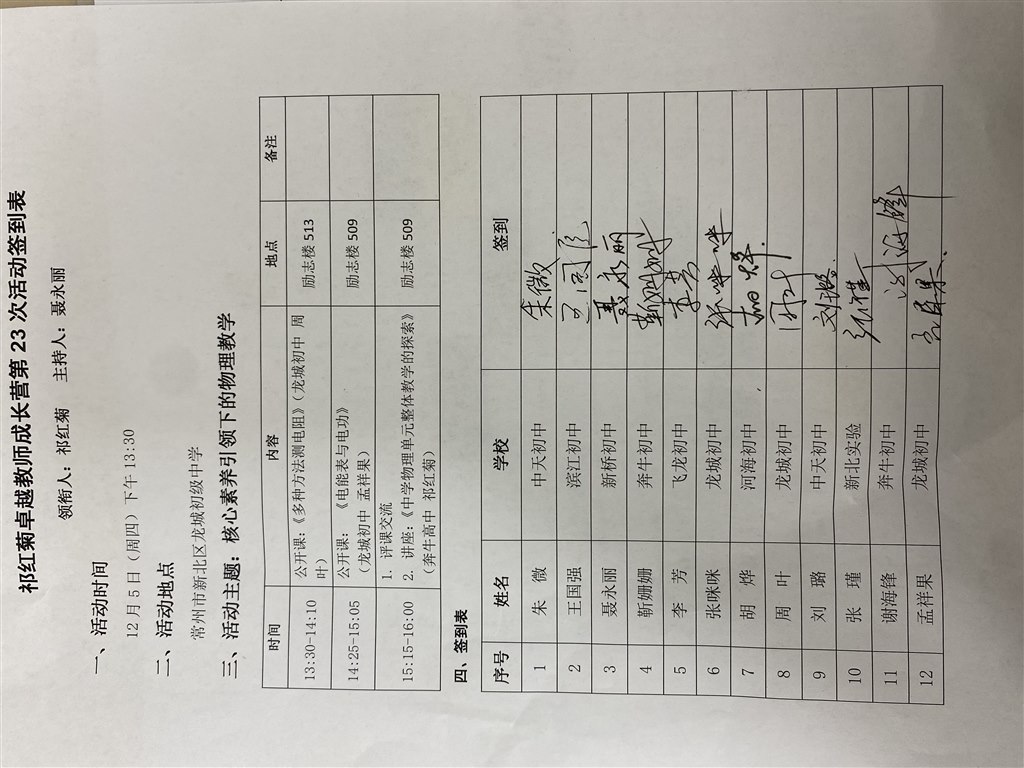 祁红菊卓越教师成长营第 23 次活动签到表
领衔人：祁红菊 主持人：聂永丽
一、活动时间
12 月 5 日（周四）下午 13:30
二、活动地点
常州市新北区龙城初级中学
三、活动主题：核心素养引领下的物理教学
时间 内容 地点 备注
13:30-14:10 公开课：《多种方法测电阻》（龙城初中 周
叶） 励志楼 513
14:25-15:05 公开课：《电能表与电功》
（龙城初中 孟祥果） 励志楼 509
15:15-16:00 1. 评课交流
2. 讲座：《中学物理单元整体教学的探索》
（奔牛高中 祁红菊） 励志楼 509
四、签到表
序号 姓名 学校 签到
1 朱 微 中天初中 朱微
2 王国强 滨江初中 王国强
3 聂永丽 新桥初中 聂永丽
4 靳姗姗 奔牛初中 靳姗姗
5 李 芳 飞龙初中 李芳
6 张咪咪 龙城初中 张咪咪
7 胡 烨 河海初中 胡烨
8 周 叶 龙城初中 周叶
9 刘 璐 中天初中 刘璐
10 张 瑾 新北实验 张瑾
11 谢海锋 奔牛初中 谢海锋
12 孟祥果 龙城初中 孟祥果